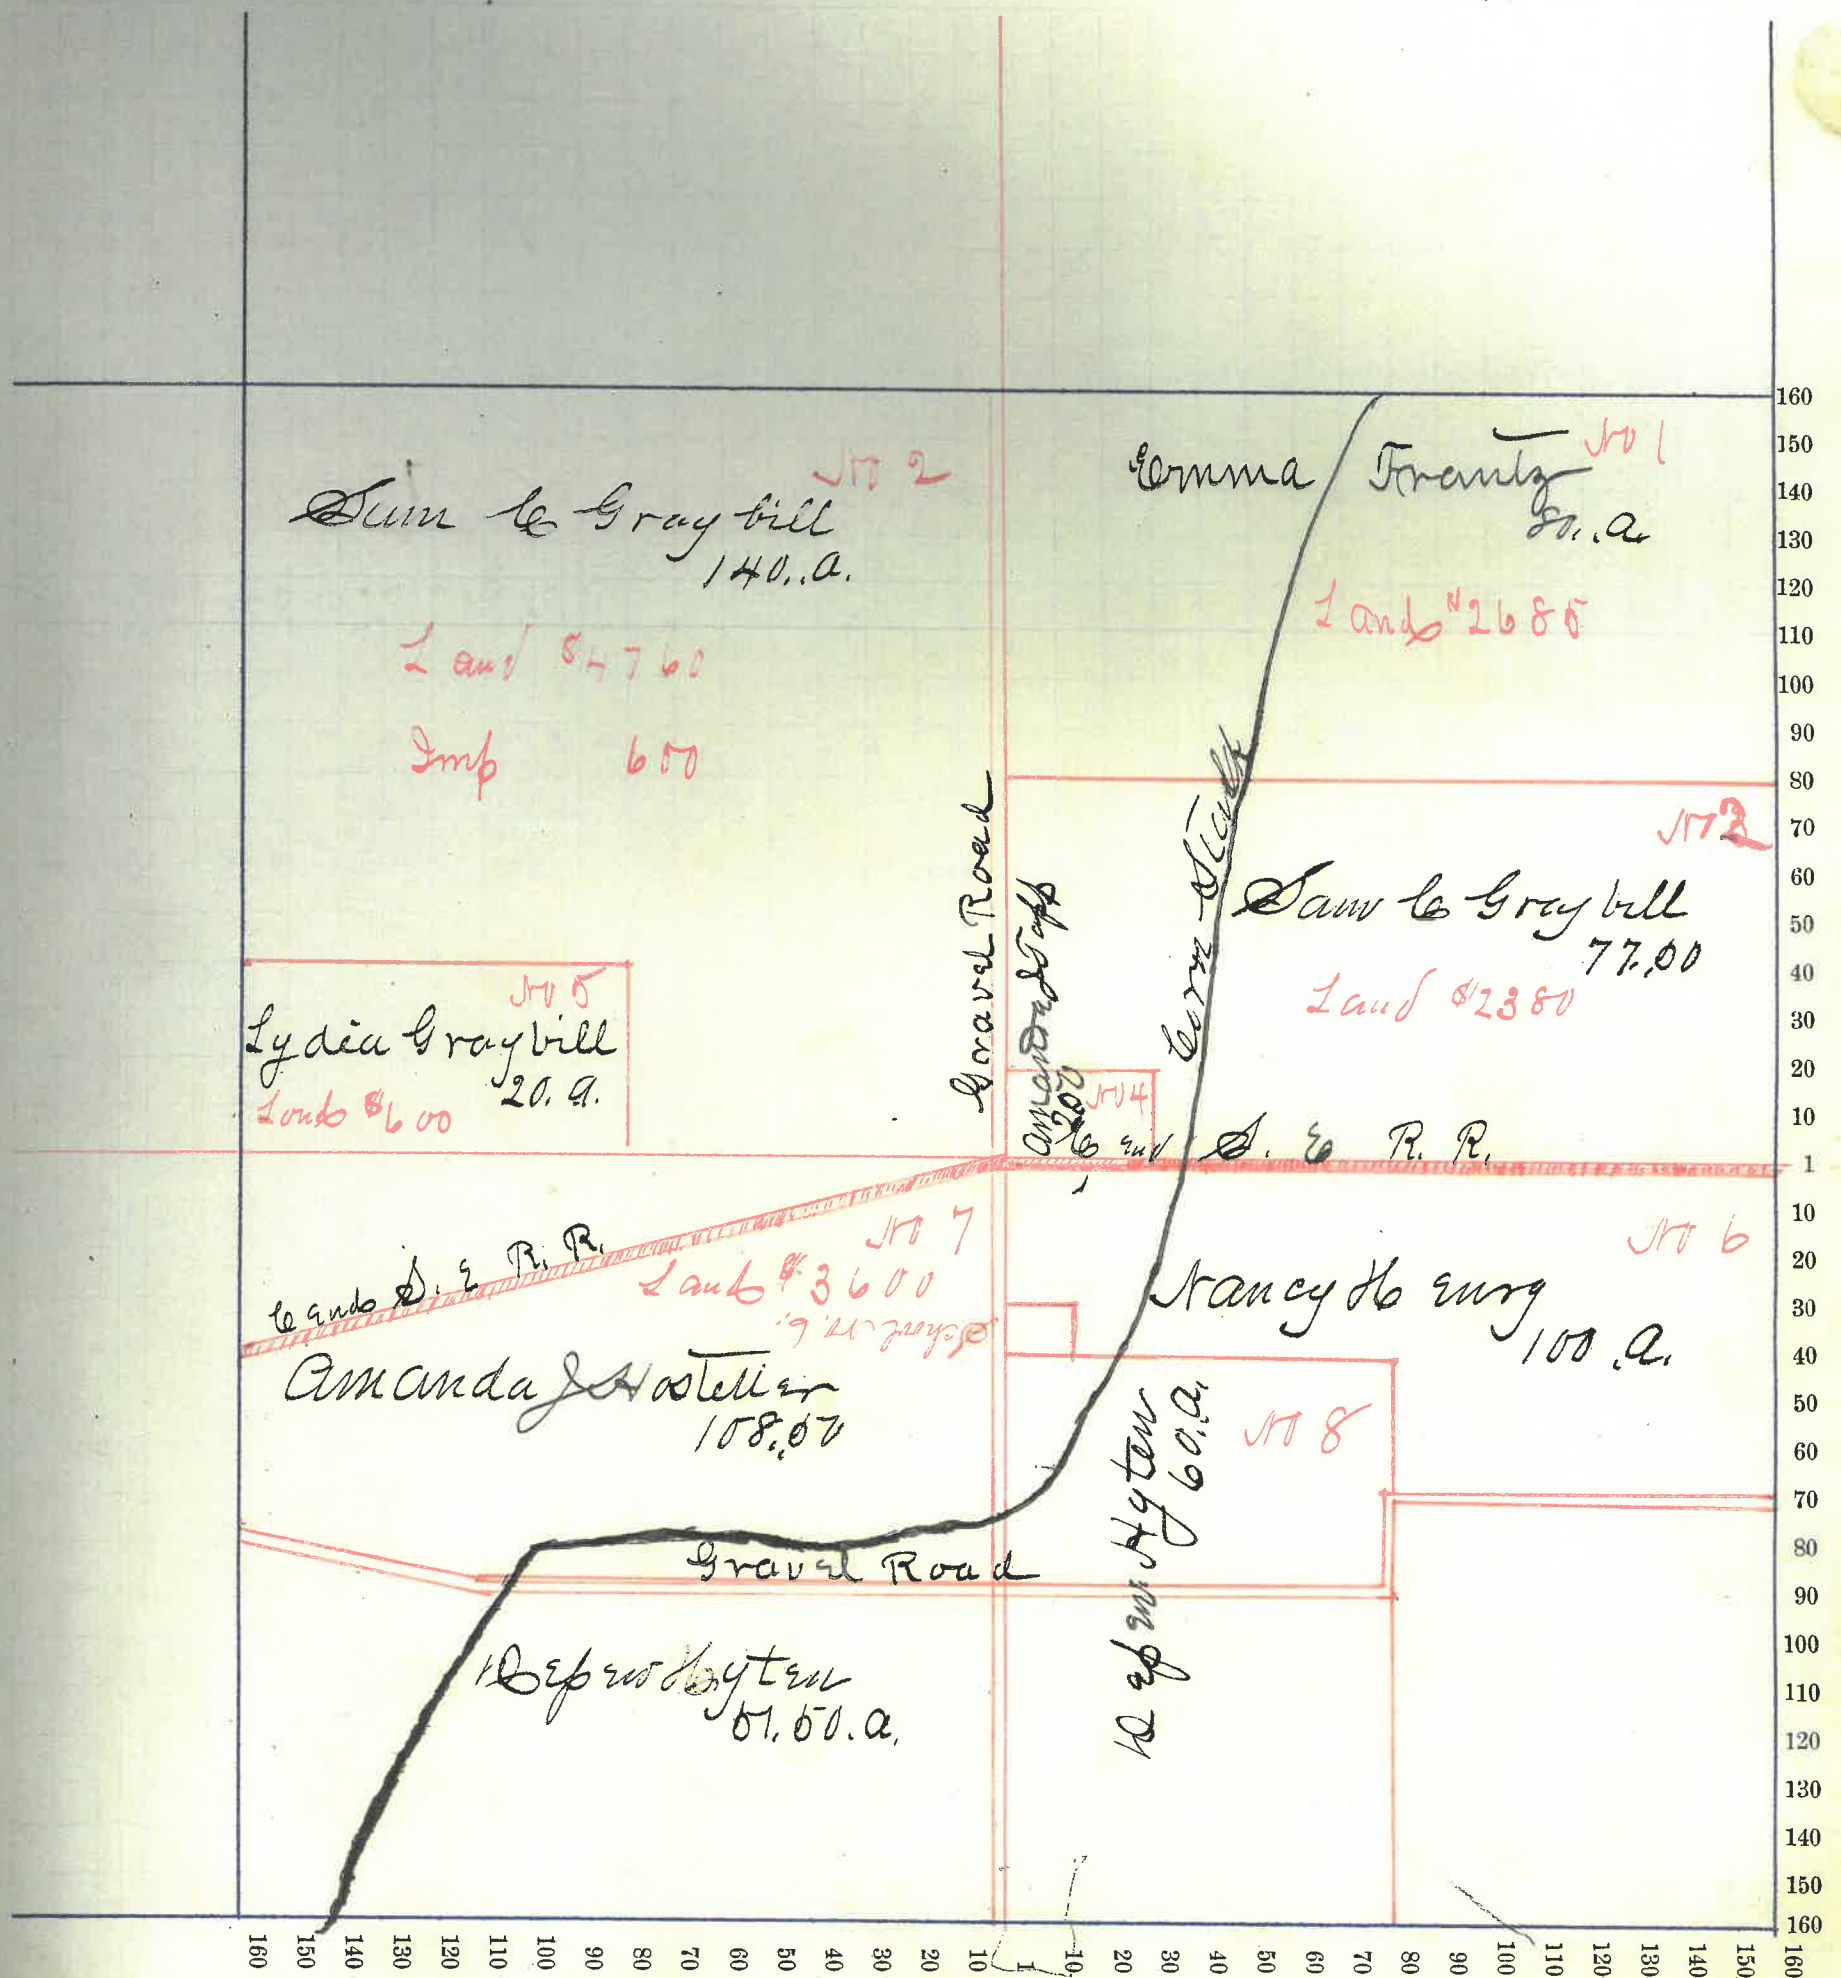 No 2
Sam C Graybill
140..a.
Land $4760
Imp 600
No 1
Emma Frantz
80..a.
Land $2685
Gravel Road
Corn Stalk
No 3
Sam C Graybill
77.00
Land $2380
No 5
Lydia Graybill
20. a.
Land $600
Amanda J
200
No 4
C and S. E R. R.
C and S. E R. R.
No 7
Land $3600
School No. 6.
Amanda J Hostetler
108.00
No 6
Nancy Henry
100.a.
Depew Hyten
60.a.
No 8
Gravel Road
Depew Hyten
51.50.a.
160
150
140
130
120
110
100
90
80
70
60
50
40
30
20
10
1
10
20
30
40
50
60
70
80
90
100
110
120
130
140
150
160
160 150 140 130 120 110 100 90 80 70 60 50 40 30 20 10 1 10 20 30 40 50 60 70 80 90 100 110 120 130 140 150 160